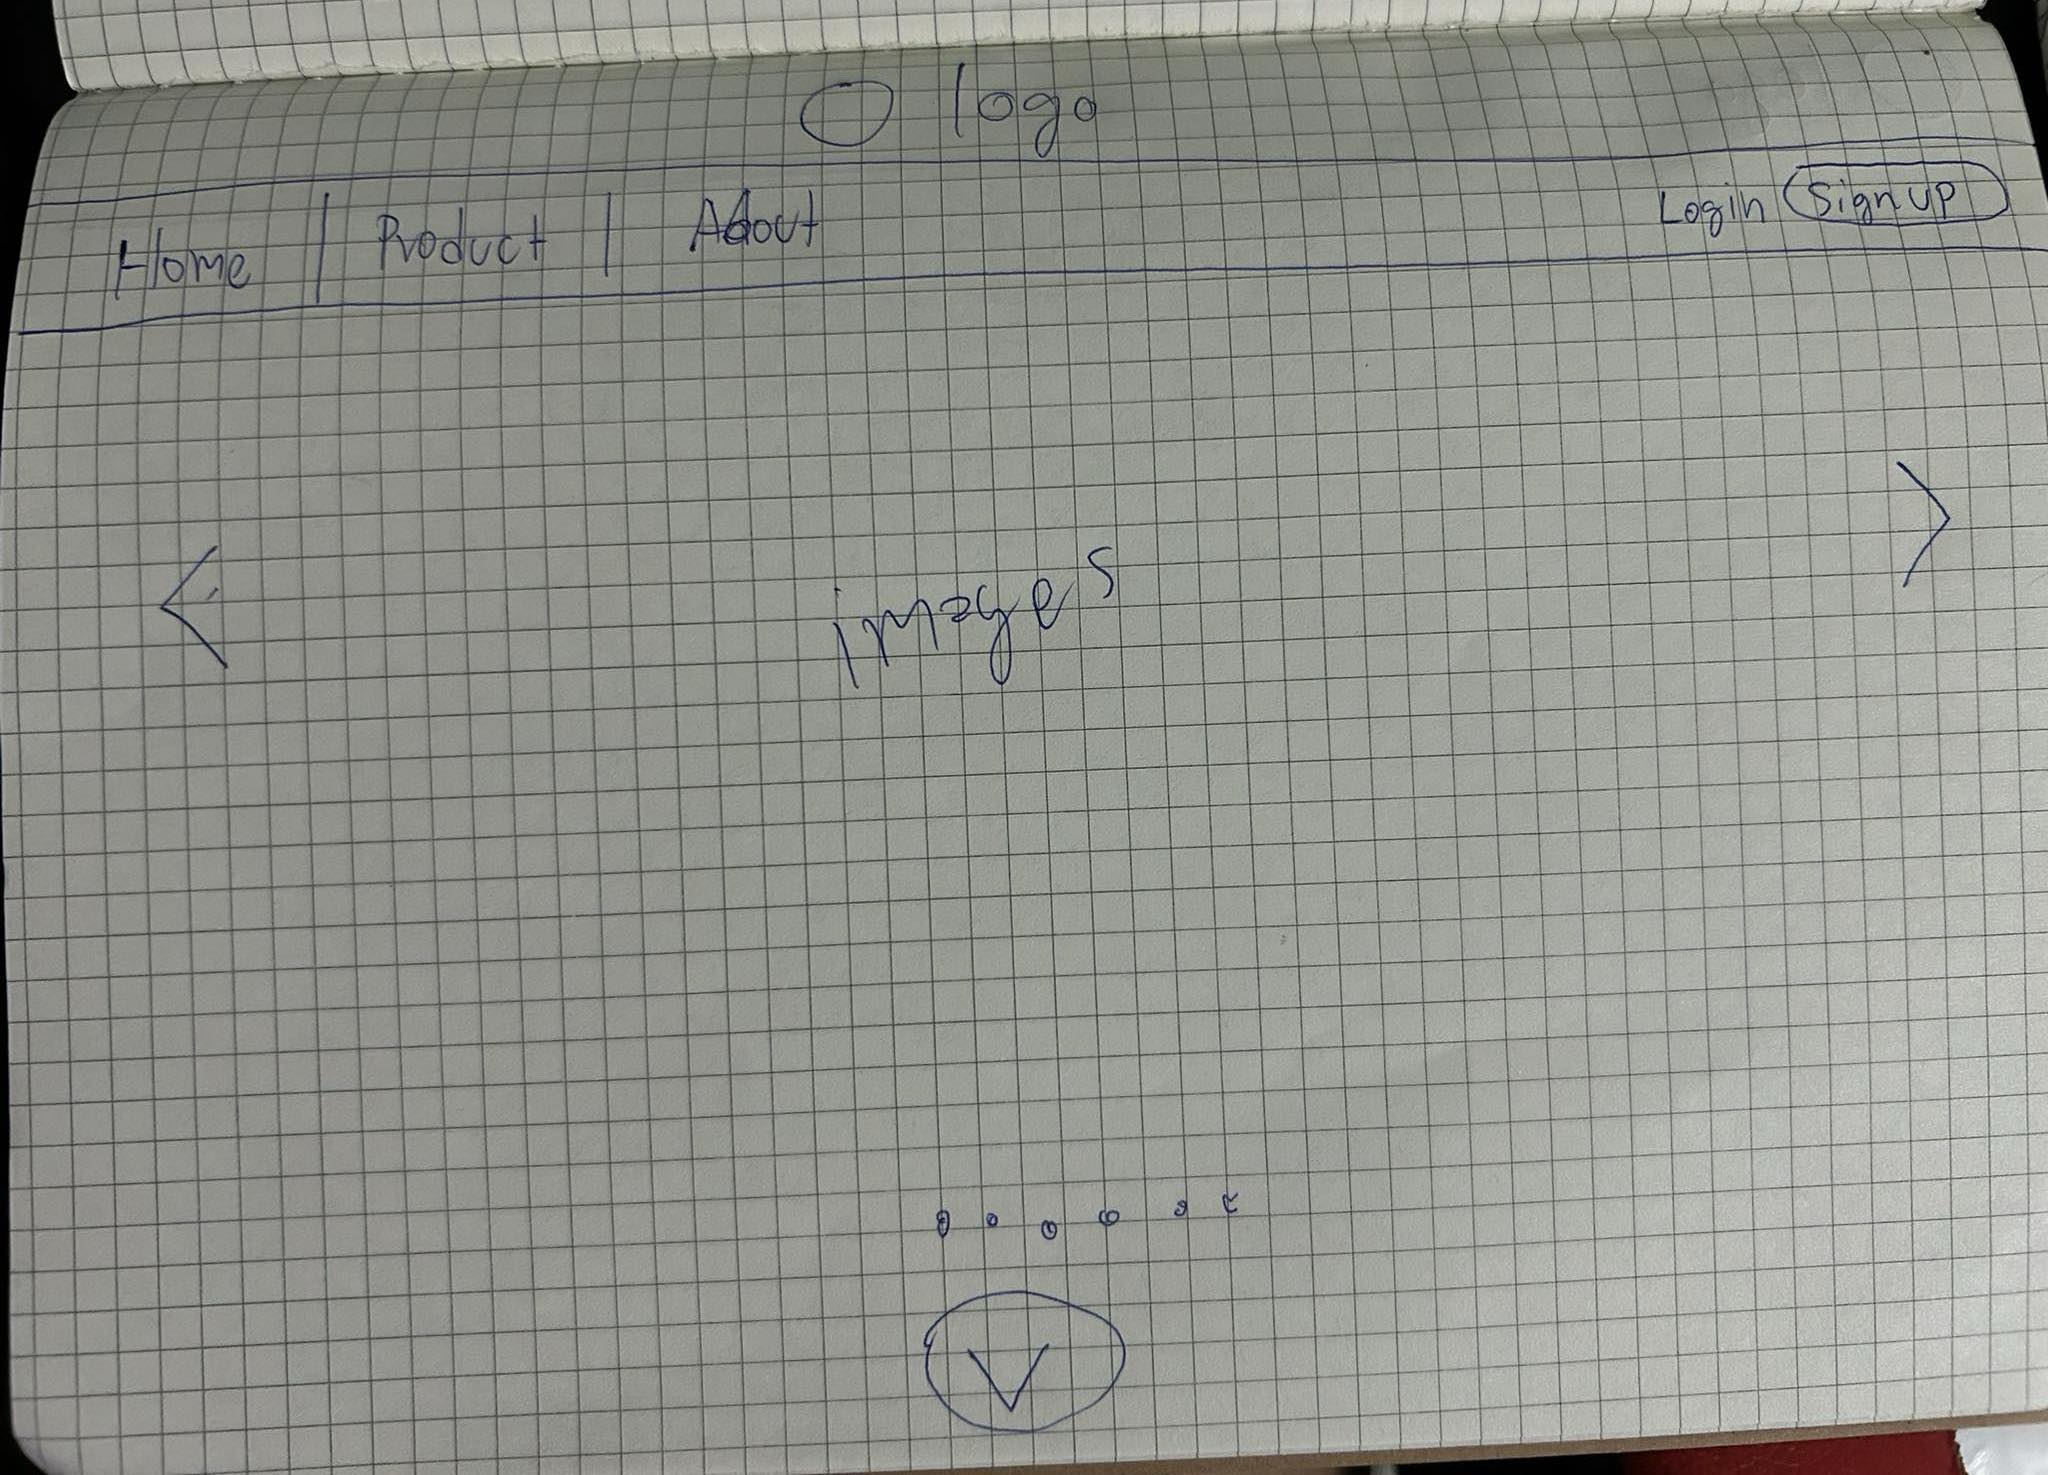 logo
Home | Product | About
Login Sign up
<
images
>